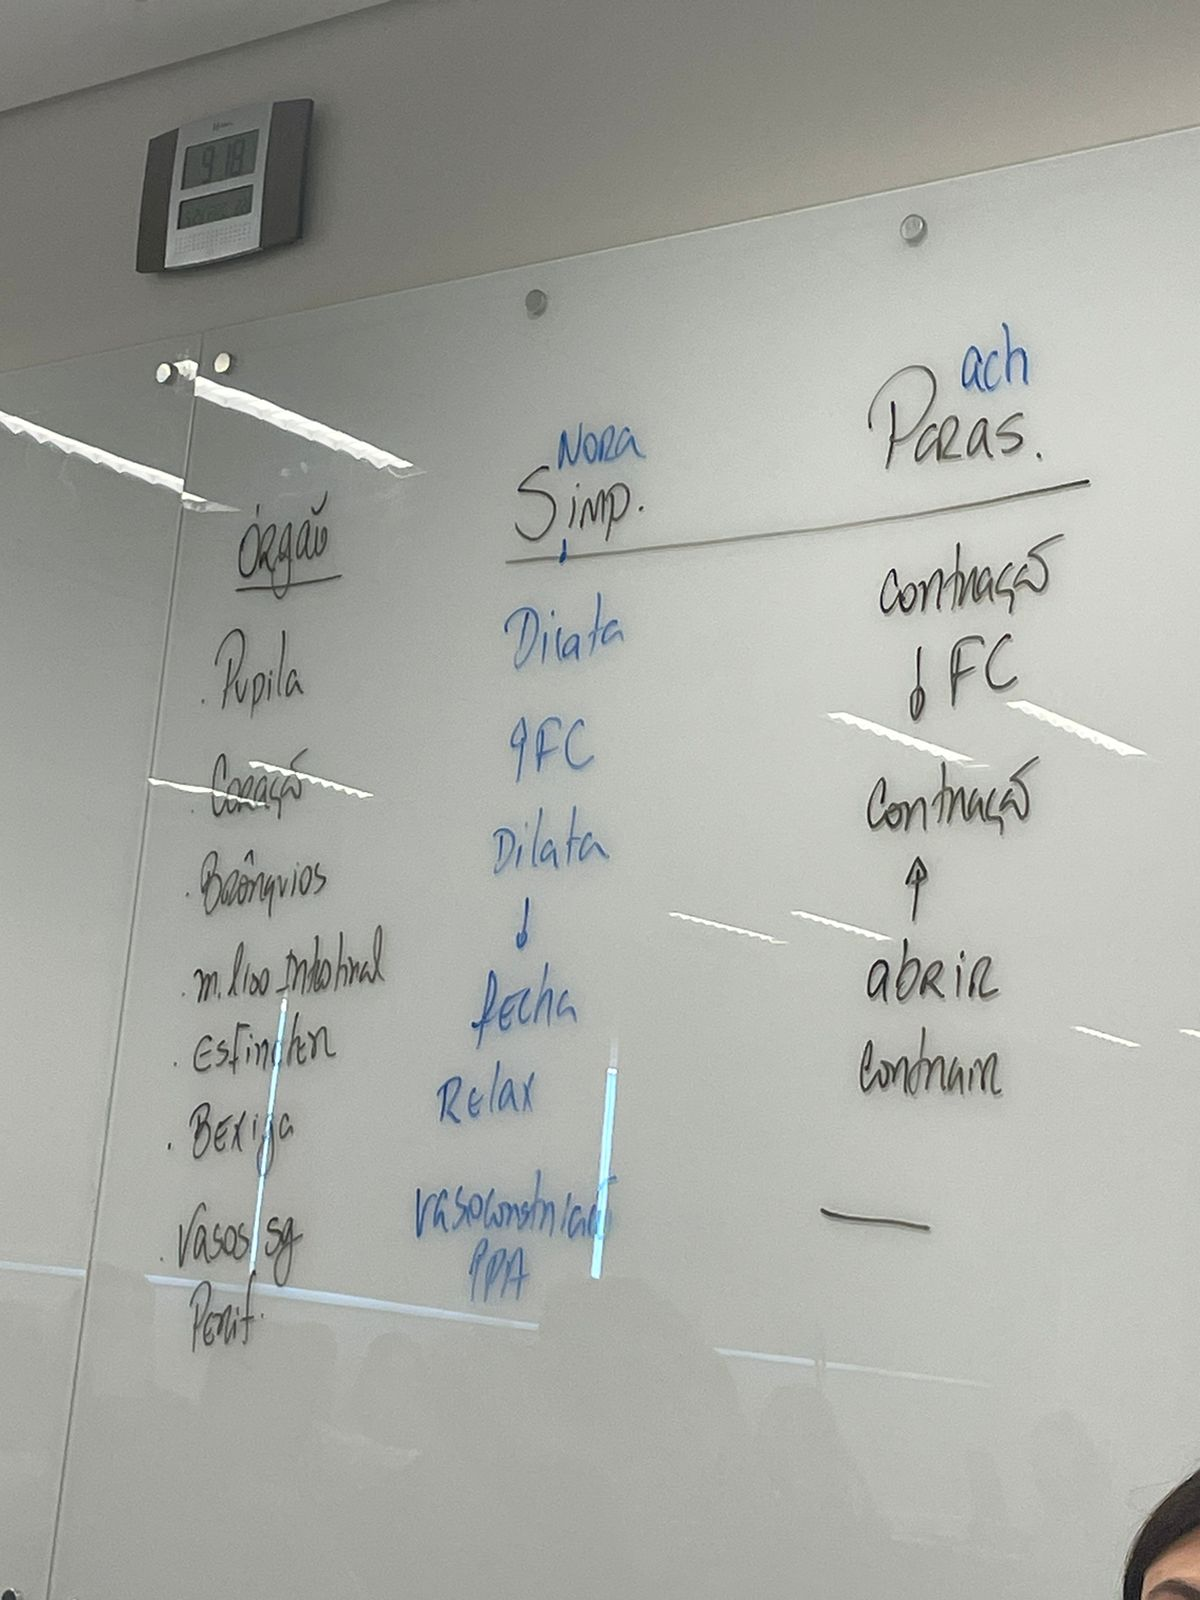 9 18
ach
Nora Paras.
Órgão Simp.
. Pupila Dilata Contração
. Coração ↑FC ↓ FC
. Brônquios Dilata Contração
. m. liso Intestinal ↓ ↑
. Esfincter fecha abrir
. Bexiga Relax Contrair
. Vasos sg Vasoconstrição —
Perif. ↑PA